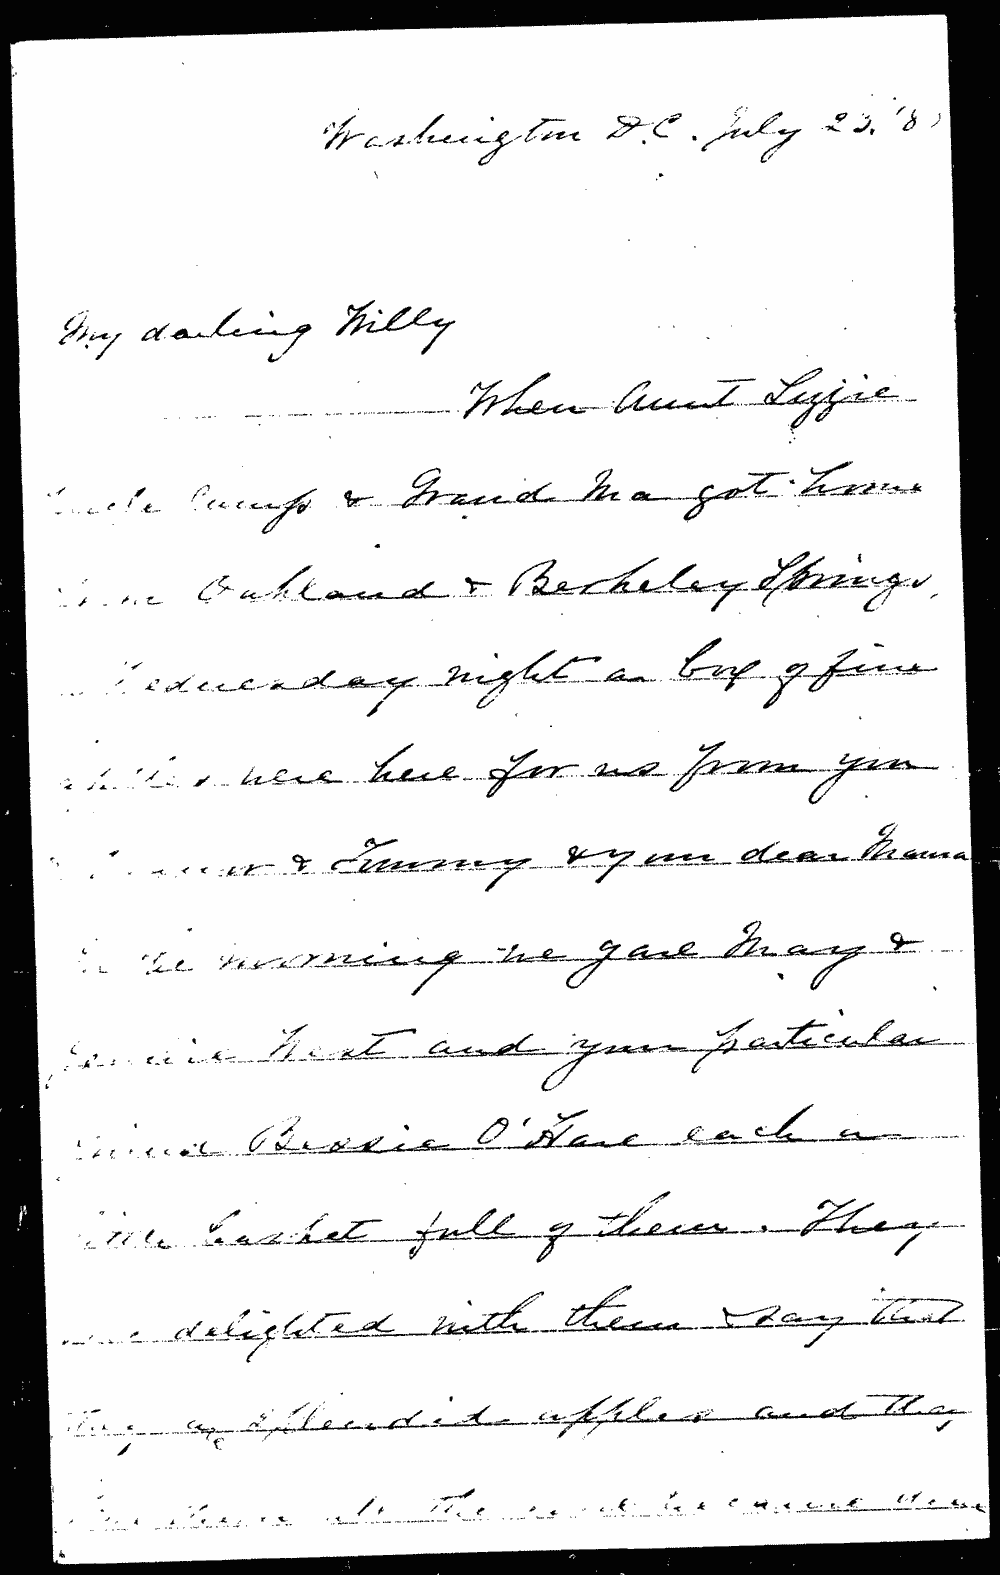 Washington D.C. July 23. '8
My darling Willy
When Aunt Lizzie
Uncle Cump & Grand Ma got home
from Oakland & Berkeley Springs,
Wednesday night a box of fine
apples were here for us from you
& Tommy & your dear Mama
In the morning we gave May &
Jennie West and your particular
friend Bessie O'Hare each a
little basket full of them. They
were delighted with them & say that
they are splendid apples and they
them all the because